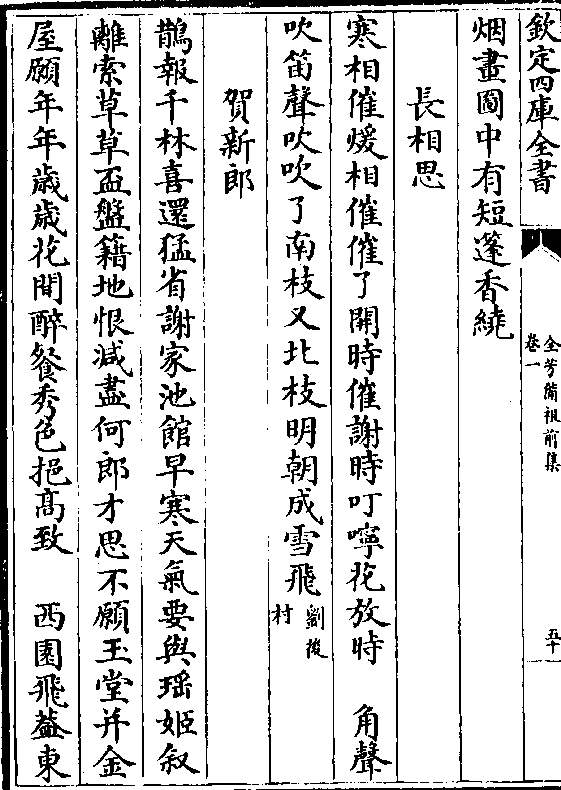 欽定四庫全書
全芳備祖前集
卷一
五十
烟畫圖中有短蓬香繞
長相思
寒相催煖相催催了開時催謝時叮嚀花放時　角聲
吹笛聲吹吹了南枝又北枝明朝成雪飛劉後村
賀新郎
鵲報千林喜還猛省謝家池館早寒天氣要與瑶姬叙
離索草草盃盤籍地恨減盡何郎才思不願玉堂并金
屋願年年歲歲花間醉餐秀色挹髙致　西園飛葢東